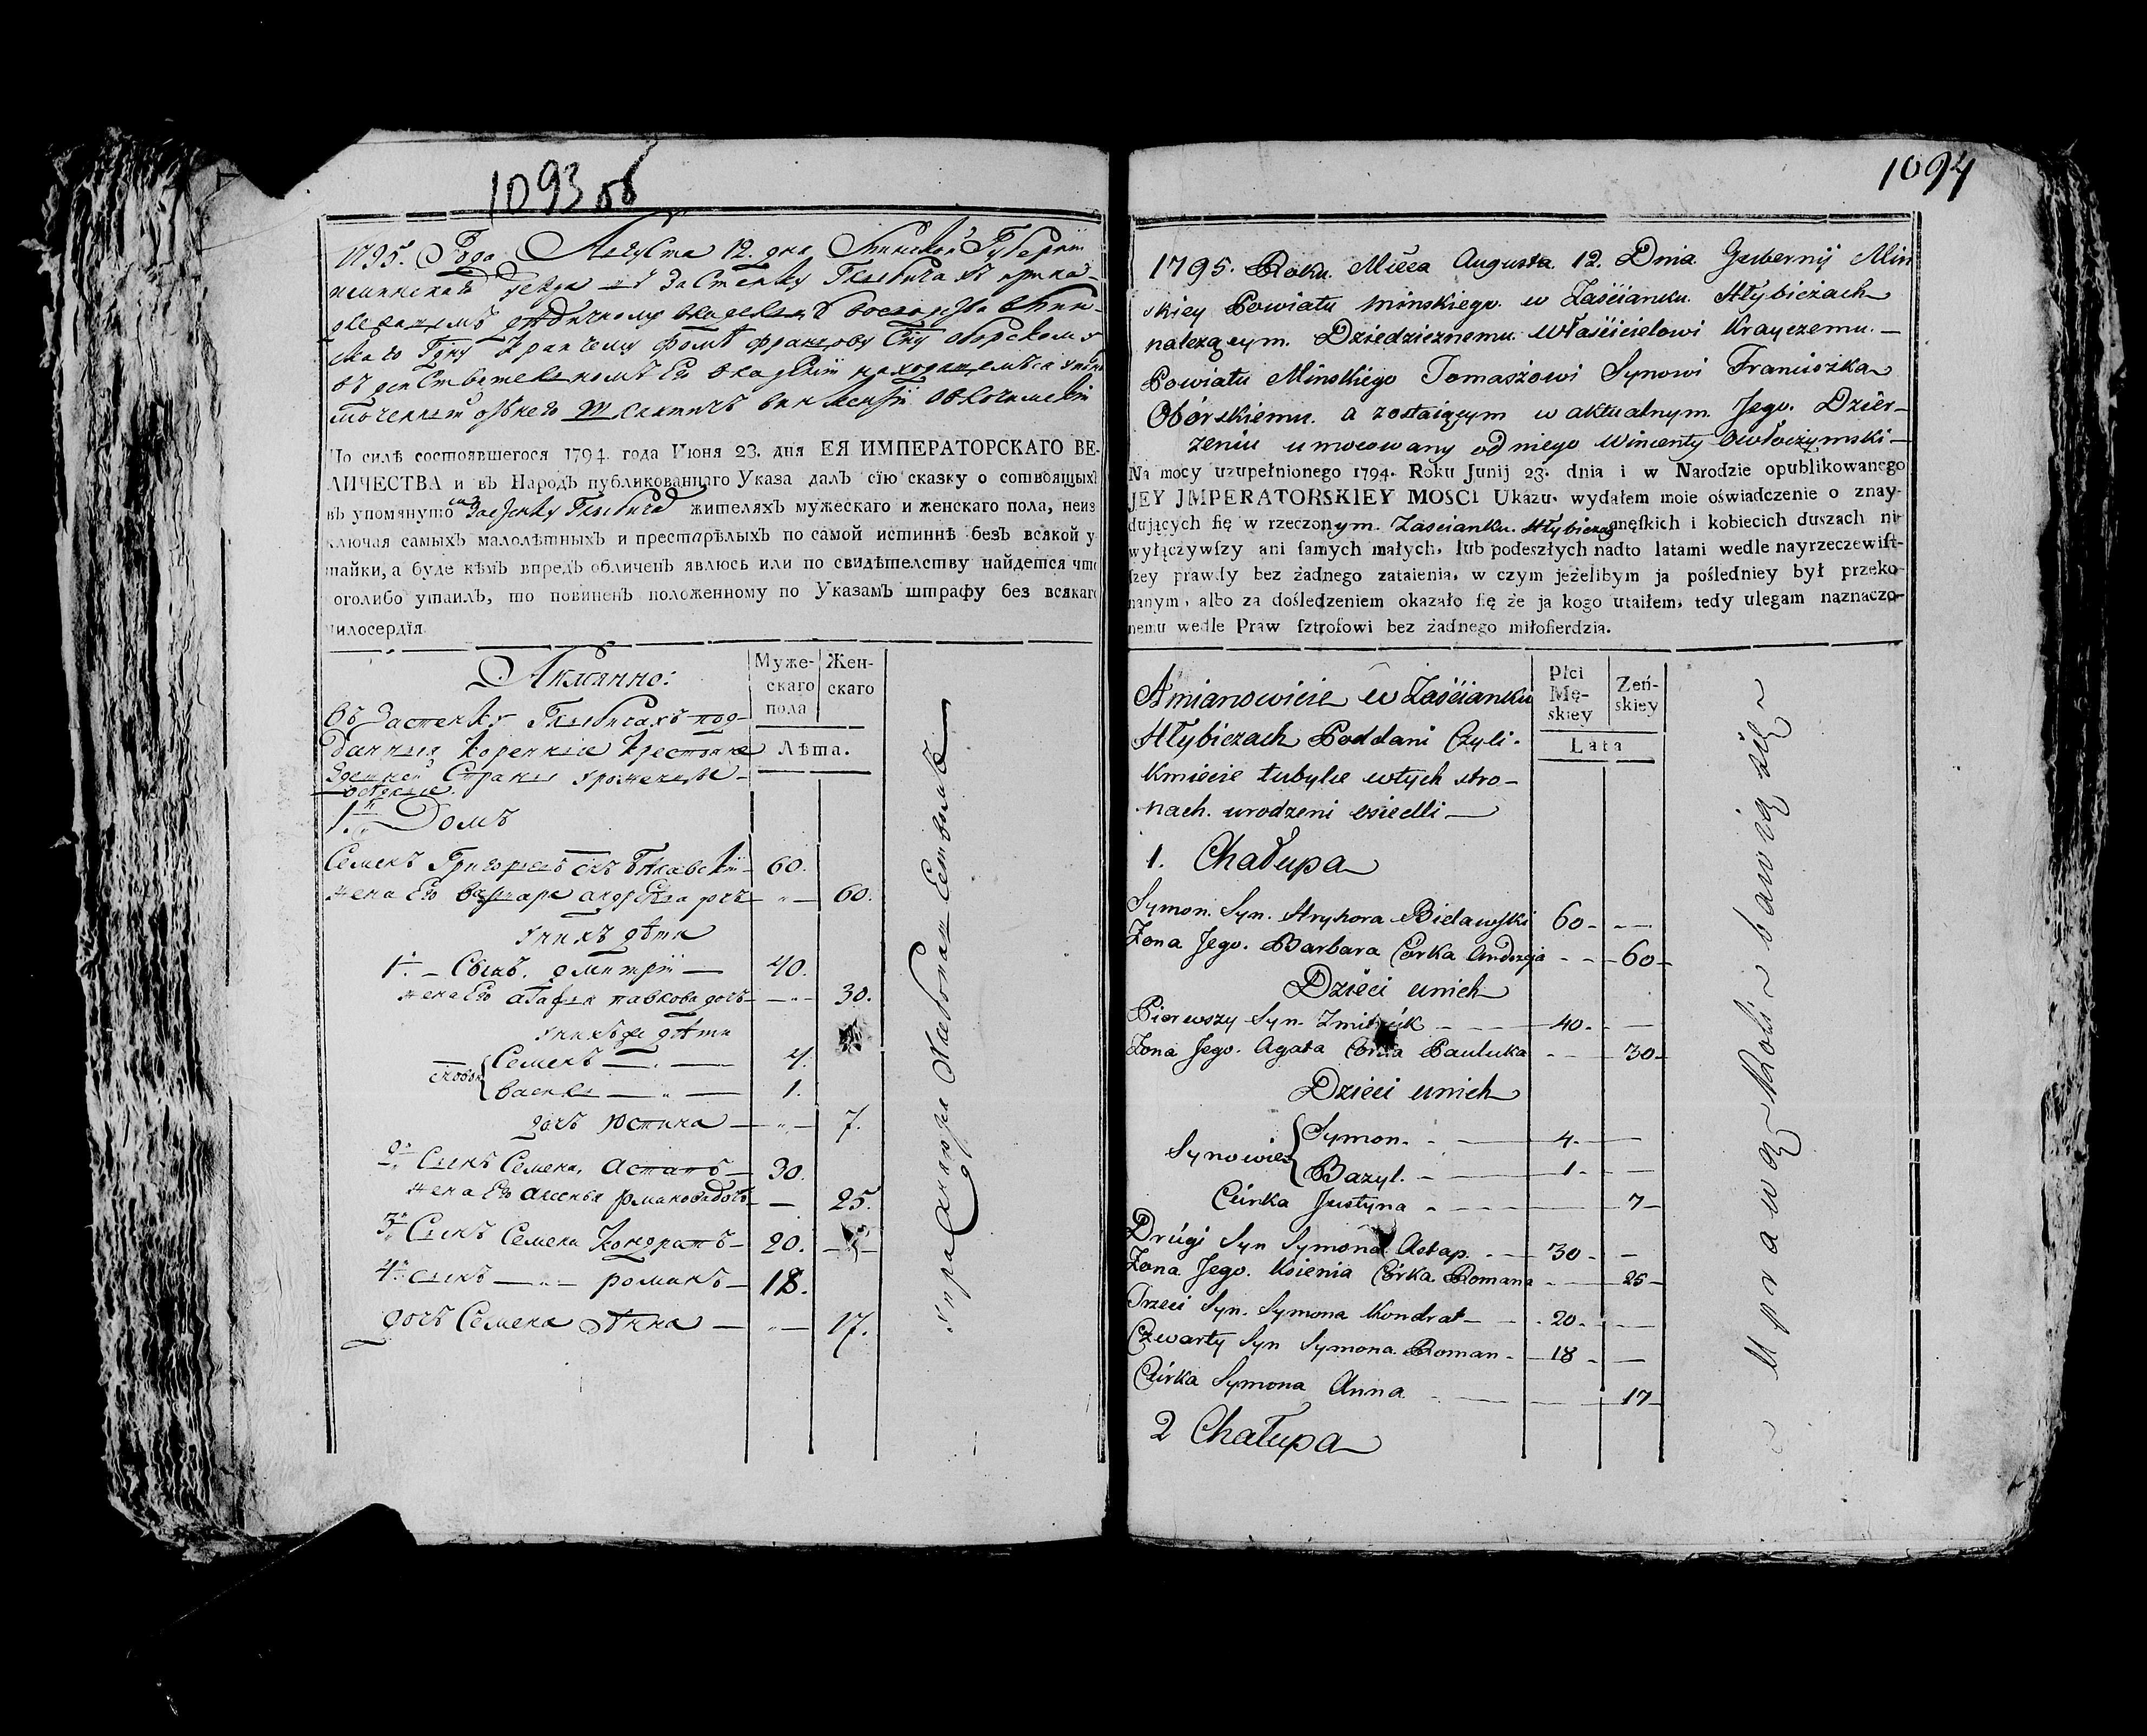 1093 об
1795. Года Августа 12. дня Минской Губернїи
Минскаго уезда въ Застенку Глыбичахъ
воеводства Мин-
скаго Крайчему Фоме
въ действительномъ Его владенїи находящемся
отъ него
По силѣ состоявшегося 1794. года Июня 23. дня ЕЯ ИМПЕРАТОРСКАГО ВЕ-
ЛИЧЕСТВА и въ Народъ публикованнаго Указа далъ сїю сказку о сотвоящыхъ
въ упомянуто Застенку Глыбичах жителяхъ мужескаго и женскаго пола, неиз
ключая самыхъ малолѣтныхъ и престарѣлыхъ по самой истиннѣ безъ всякой у
тайки, а буде кѣмъ впредь обличенъ явлюсь или по свидѣтелству найдется что
оголибо утаилъ, то повиненъ положенному по Указамъ штрафу без всякаго
милосердїя
Муже-
скаго
пола
Жен-
скаго
Лѣта.
въ Застенку Глыбичахъ под-
данныя коренныя крестьяне
1. Домъ
Семенъ Григорьевъ снъ Белавскїи 60.
жена Его варвара андреева дочь — 60.
у них дети
1. – Сынъ. дмитрїи — 40.
жена Его агафья павкова дочь — 30.
у нихъ же дети
Семенъ — 4.
василь — 1.
дочь юстина — 7.
2. Сынъ Семена, астапъ — 30.
жена Его аксенья романова дочь — 25.
3. Сынъ Семена Кондратъ — 20.
4. сынъ — романъ — 18.
дочь Семена Анна — 17.
1094
1795. Roku. Mięca Augusta. 12. Dnia Gubernij Min
skiey Powiatu Mińskiego. w Zaścianku Hłybiczach
należącym. Dziedzicznemu. Właścicielowi Krayczemu. —
Powiatu Mińskiego Tomaszowi Synowi Franciszka
Obórskiemu. a zostaiącym w aktualnym. Jego. Dzier-
żeniu umocowany od niego Wincenty Owłoczymski —
Na mocy uzupełnionego 1794. Roku Junij 23. dnia i w Narodzie opublikowanego
JEY JMPERATORSKIEY MOSCI Ukazu, wydałem moie oświadczenie o znay-
dujących ſię w rzeczonym. Zascianku. Hłybiczach męſkich i kobiecich duszach nie
wyłączywſzy ani ſamych małych, lub podeszłych nadto latami wedle nayrzeczewiſt-
ſzey prawdy bez żadnego zataienia, w czym jeżelibym ja poſledniey był przeko-
nanym, albo za dośledzeniem okazało ſię że ja kogo utaiłem, tedy ulegam naznaczo-
nemu wedle Praw ſztrofowi bez żadnego miłoſierdzia.
Płci
Mę-
skiey
Zeń-
skiey
Lata
Amianowicie w Zaścianku
Hłybiczach Poddani Czyli.
Kmiecie tubylce w tych stro-
nach. urodzeni osiedli —
1. Chałupa
Symon. Syn. Hryhora Bielawſki 60 -
Zona Jego. Barbara Córka Andrzeja - 60 -
Dzieci unich
Pierwszy Syn. Zmitruk - 40 -
Zona Jego. Agata Córka Pauluka - 30 -
Dzieci unich
Synowie
Symon. - 4 -
Bazyl. - 1 -
Córka Justyna - 7 -
Drúgi Syn Symona. Astap. - 30 -
Zona Jego. Ksienia Córka Romana - 25 -
Trzeci Syn. Symona Kondrat - 20 -
Czwarty Syn Symona. Roman - 18 -
Córka Symona Anna - 17 -
2 Chałupa
Uprawą Roli bawią się